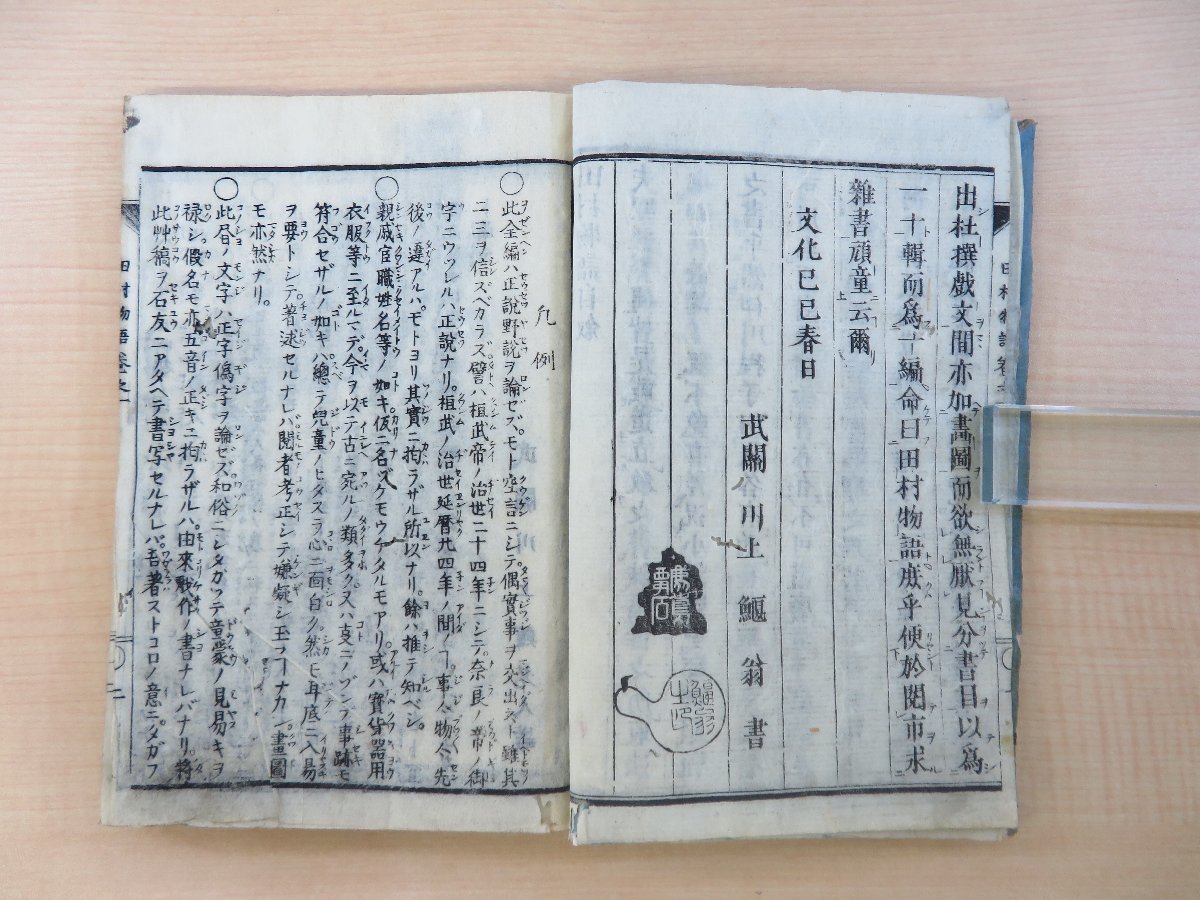 出杜撰戯文間亦加畵圖而欲無厭見分書目以爲
一十輯而爲十編命曰田村物語庶乎便於閲市求
雜書頑童云爾
文化己巳春日
武關川上 鰋翁 書
凡例
○此全編ハ正説野説ヲ論ゼズ。モト空言ニシテ。偶實事ヲ交出スト雖其
二三ヲ信ズベカラズ譬ハ桓武帝ノ治世二十四年ニシテ。奈良ノ帝ノ御
字ニウツレルハ正説ナリ。桓武ノ治世延暦九四年ノ間ノヿ事人物々先
後ノ違アルハ。モトヨリ其實ニ拘ラザル所以ナリ。餘ハ推テ知ベシ。
○親戚官職姓名等ノ如キ仮ニ名ズクモウケタルモアリ。或ハ實貨器用
衣服等ニ至ルマデ。今ヲ以テ古ニ宛ルノ類多ク又ハ爰ニノゾンデ事跡モ
符合セザルノ如キハ總テ兒童ノヒタスラ心ニ面白ク然モ耳底ニ入易
ヲ要トシテ著述セルナレバ閲者考正シテ嫌疑シ玉フヿナカレ畫圖
モ亦然ナリ。
○此昼ノ文字ハ正字偽字ヲ論ゼズ和俗ニシタガツテ童蒙ノ見易キヲ
禄シ假名モ亦五音ノ正キニ拘ラザルハ。由來戯作ノ書ナレバナリ。將
此艸稿ヲ石友ニアタヘテ書写セルナレバ吾著ストコロノ意ニタガフ
田村物語 卷之一